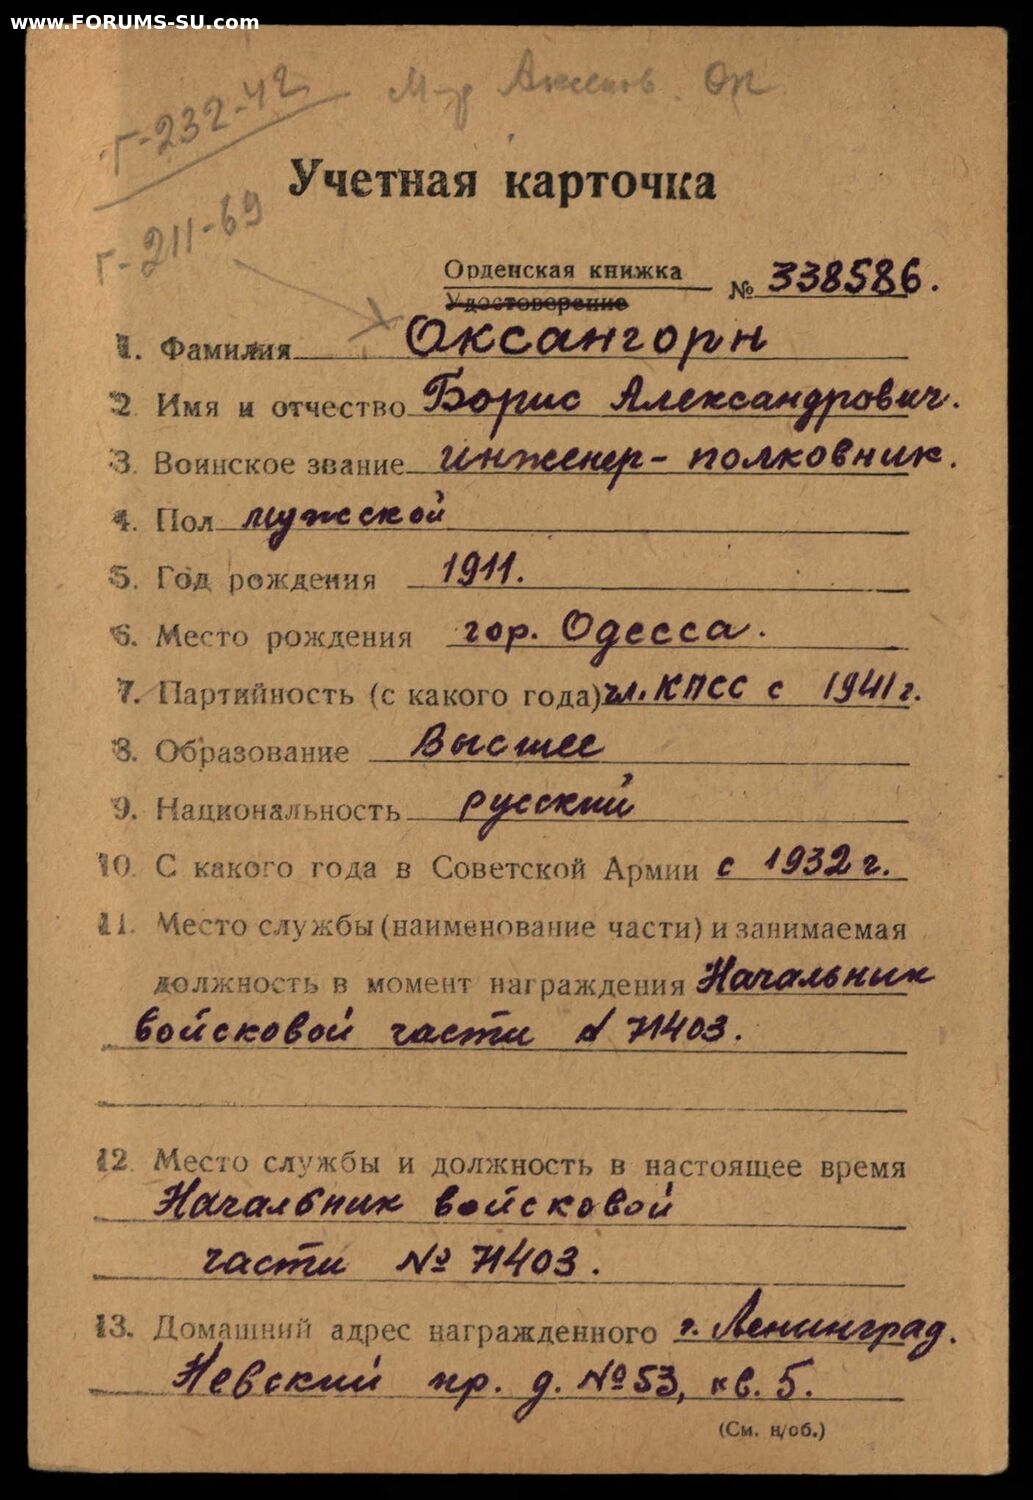 www.FORUMS-SU.com
Г-232-42
М-р Аксенов. Оп
Учетная карточка
Г-211-69
Орденская книжка
Удостоверение
№ 338586.
1. Фамилия Оксангорн
2. Имя и отчество Борис Александрович.
3. Воинское звание инженер-полковник.
4. Пол мужской
5. Год рождения 1911.
6. Место рождения гор. Одесса.
7. Партийность (с какого года) чл. КПСС с 1941 г.
8. Образование Высшее
9. Национальность русский
10. С какого года в Советской Армии с 1932 г.
11. Место службы (наименование части) и занимаемая
должность в момент награждения Начальник
войсковой части № 71403.
12. Место службы и должность в настоящее время
Начальник войсковой
части № 71403.
13. Домашний адрес награжденного г. Ленинград.
Невский пр. д. № 53, кв. 5.
(См. н/об.)